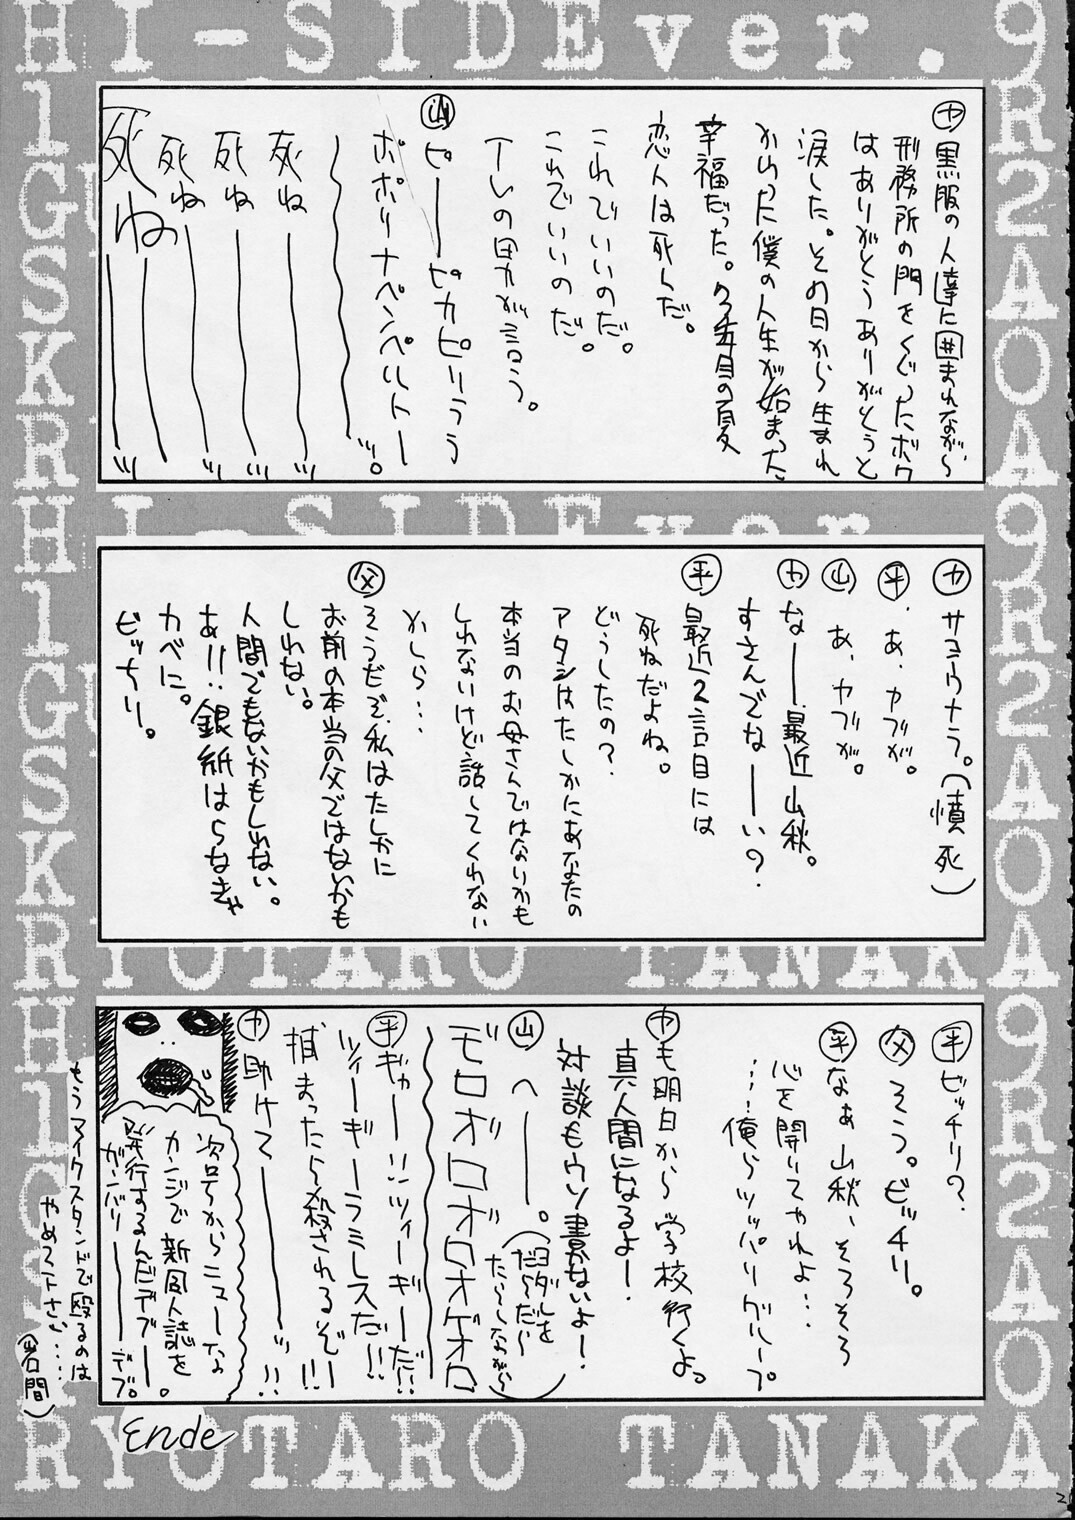 HI-SIDEver.
㋳黒服の人達に囲まれながら、
刑務所の門をくぐったボク
はありがとうありがとうと
涙した。その日から生まれ
かわった僕の人生が始まった
幸福だった。7年目の夏
恋人は死んだ。
これでいいのだ。
これでいいのだ。
Tレの男が言う。
㊤ピーーピカピリうう
ポポリナペンペルトー
〜〜ッ。
死ね──ッ
死ね──ッ
死ね──ッ
死ね──ッ
HI-SIDEver.
㋳サヨウナラ。(憤死)
㊥あ、ヤブが。
山 あ、ヤブが。
㋳なーー最近山秋。
すさんでなーーい?
平 最近2言目には
死ねだよね。
どうしたの?
アタシはたしかにあなたの
本当のお母さんではないかも
しれないけど、話してくれない
かしら…
父 そうだぞ、私はたしかに
お前の本当の父ではないかも
しれない。
人間でもないかもしれない。
あ!!銀紙はらなきゃ
カベに。
ビッチリ。
RYOTARO TANAKA
平 ビッチリ?
父 そう。ビッチリ。
平 なぁ山秋、そろそろ
心を開いてやれよ…
……俺らツッパリグループ。
㋳も明日から学校行くよっ
真人間になるよー!
対談もウソ書かないよー!
山 へーー。(ヨダレを
だらだら
たらしながら)
ボロオロオロオゲオロ
平 ギャー!!ツィーギーだ!!
ツィーギーラミレスだ!!
捕まったら殺されるぞー!!!
㋳助けてーーッ!!
次号からニューな
カンジで新同人誌を
発行するんだデブー。
ガンバリーーデブ。
もうマイクスタンドで殴るのは
やめて下さい…
(岩間)
Ende
RYOTARO TANAKA
2